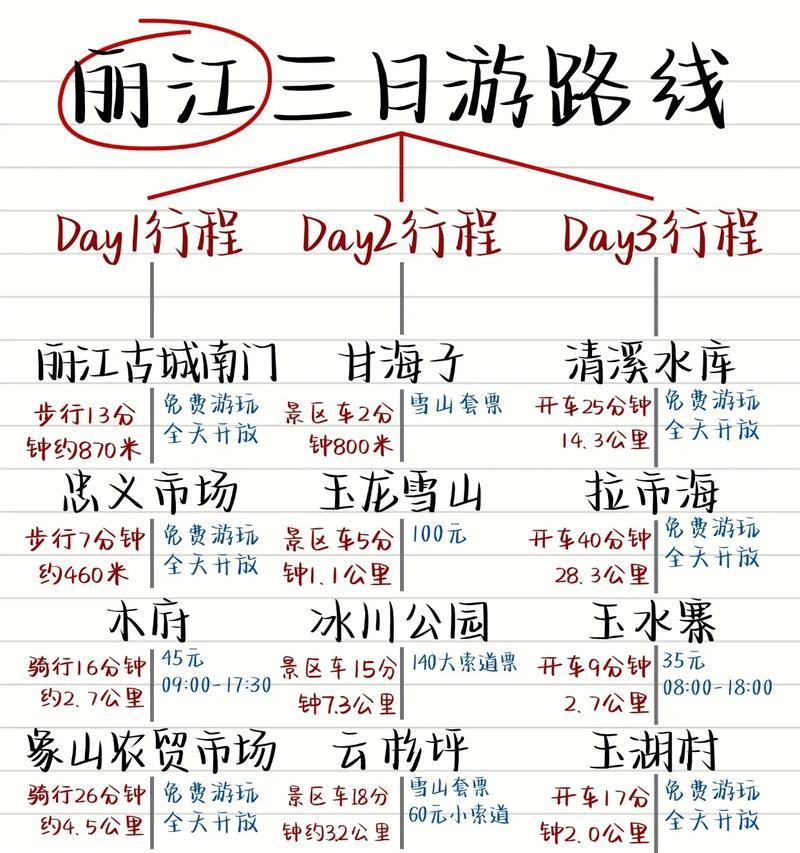 丽江三日游路线
Day1行程
Day2行程
Day3行程
丽江古城南门
步行13分
钟约870米
免费游玩
全天开放
忠义市场
步行7分钟
约460米
免费游玩
全天开放
木府
骑行16分钟
约2.7公里
45元
09:00-17:30
象山农贸市场
骑行26分钟
约4.5公里
免费游玩
全天开放
甘海子
景区车2分
钟800米
雪山套票
玉龙雪山
景区车5分
钟1.1公里
100元
冰川公园
景区车15分
钟7.3公里
140大索道票
云杉坪
景区车18分
钟约32公里
雪山套票
60元小索道
清溪水库
开车25分钟
14.3公里
免费游玩
全天开放
拉市海
开车40分钟
28.3公里
免费游玩
全天开放
玉水寨
开车9分钟
2.7公里
35元
08:00-18:00
玉湖村
开车17分
钟2.0公里
免费游玩
全天开放